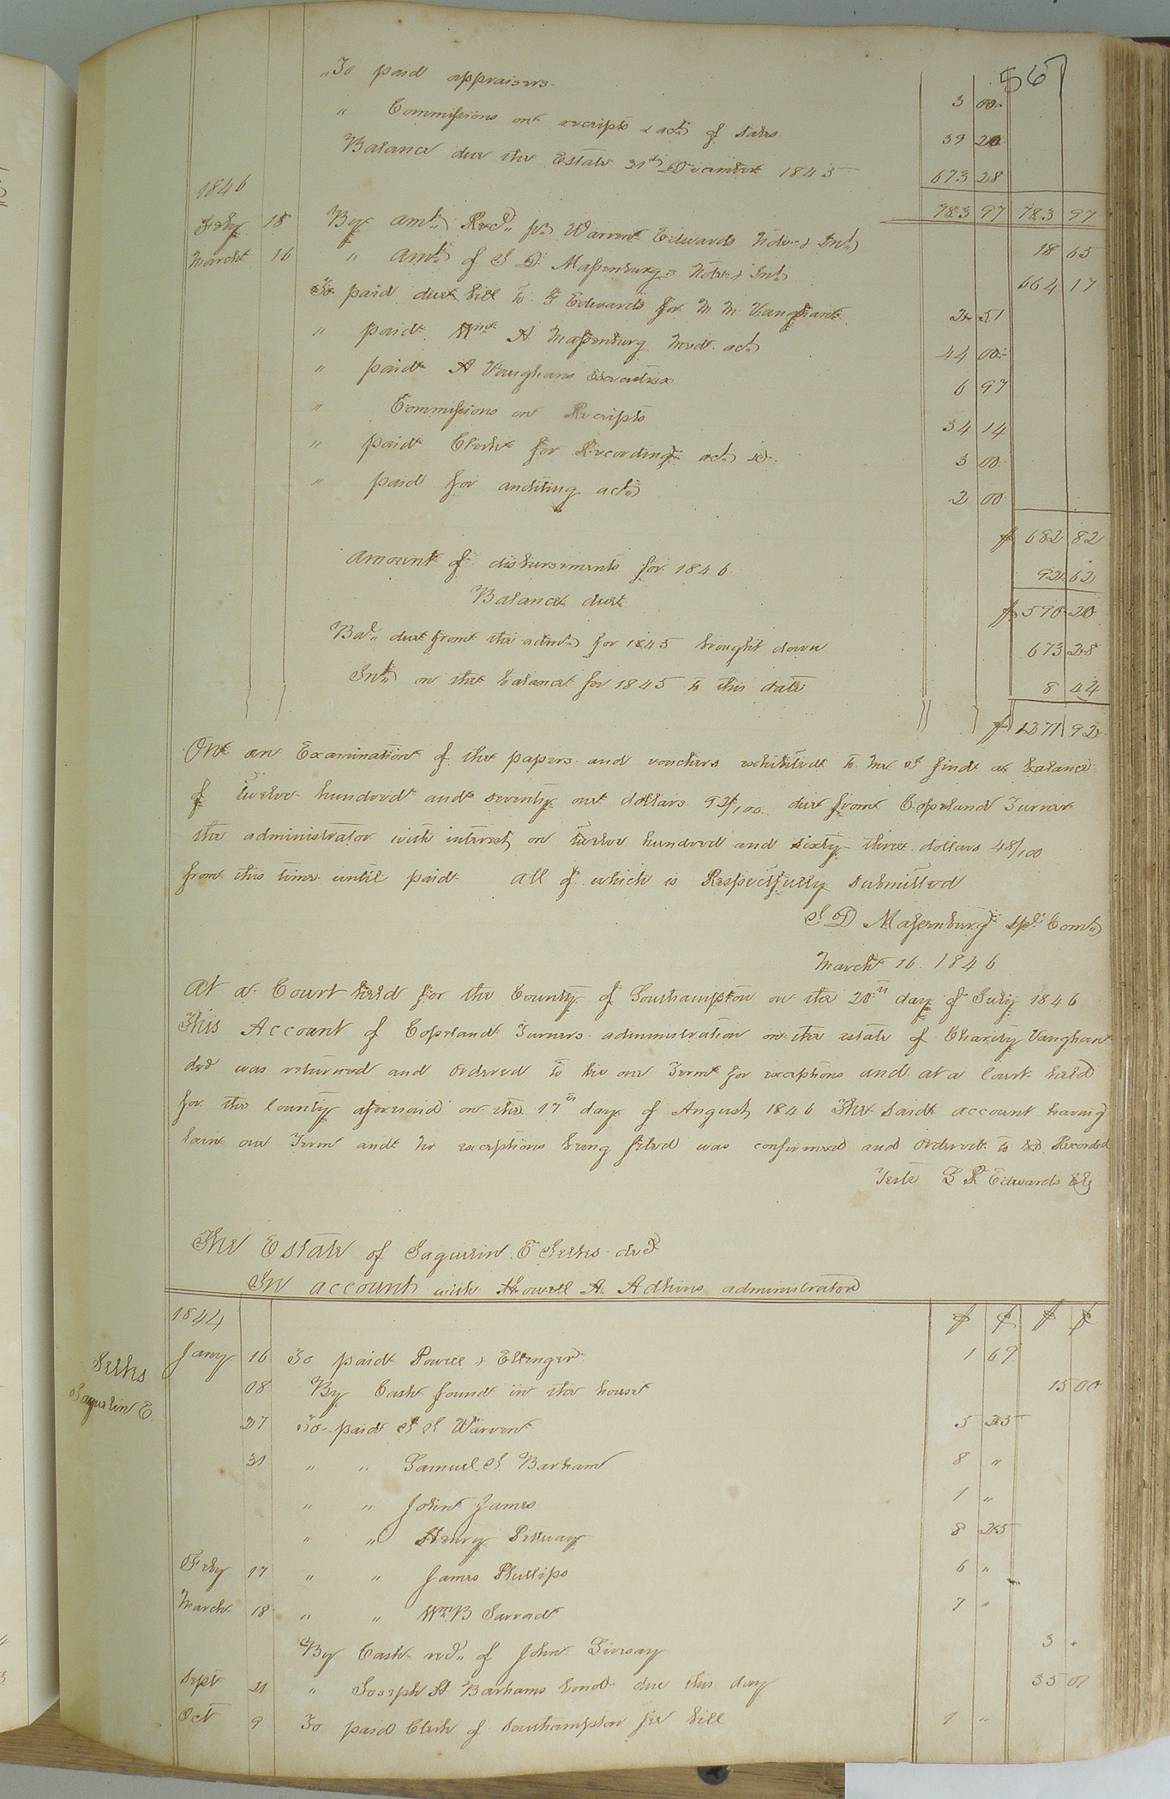 567
" To paid appraisers 3 00
" Commissions on receipts & acts of sales 39 20
Balance due the Estate 31st December 1845 673 28
1846 783 97 783 97
Feby 18 By amt Recd pr Warren Edwards Note & Int 18 65
March 16 " amt of S D Massenburgs Note & Int 664 17
To paid due bill to G Edwards for M M Vaughan 2 51
" paid Wm A Massenburg Medl act 44 00
" paid A Vaughans 6 97
" Commissions on Receipts 34 14
" paid Clerk for Recording act &c 3 00
" paid for auditing acts 2 00
$ 682 82
Amount of disbursements for 1846 92 62
Balance due $ 590 20
Bal due from the admr for 1845 brought down 673 28
Int on the balance for 1845 to this date 8 44
$ 1271 92
On an Examination of the papers and vouchers exhibited to me I find a balance
of twelve hundred and seventy one dollars 92/100 due from Copeland Turner
the administrator with interest on twelve hundred and sixty three dollars 48/100
from this time until paid all of which is Respectfully submitted
S D Massenburg Spl Comr
March 16 1846
At a Court held for the County of Southampton on the 20th day of July 1846
This Account of Copeland Turners administration on the estate of Charity Vaughan
decd was returned and ordered to lie one Term for exceptions and at a Court held
for the County aforesaid on the 17th day of August 1846 The said account having
lain one Term and no exceptions being filed was confirmed and ordered to be Recorded
Teste L R Edwards Clk
The Estate of Jaquelin E decd
In account with Howell A. Adkins administrator
1844 $ ¢ $ ¢
Jany 16 To paid & 1 69
Jaquelin E
08 By Cash found in the house 15 00
27 To paid Warren 5 25
31 " " Samuel S. Barham 8 "
" " John James 1 "
" " Henry 8 25
Feby 17 " " James Phillips 6 "
March 18 " " Wm B 7 "
By Cash recd of John 3 "
Sept 21 " Joseph H Barhams bond due this day 35 01
Oct 9 To paid Clerk of Southampton fee bill 1 "